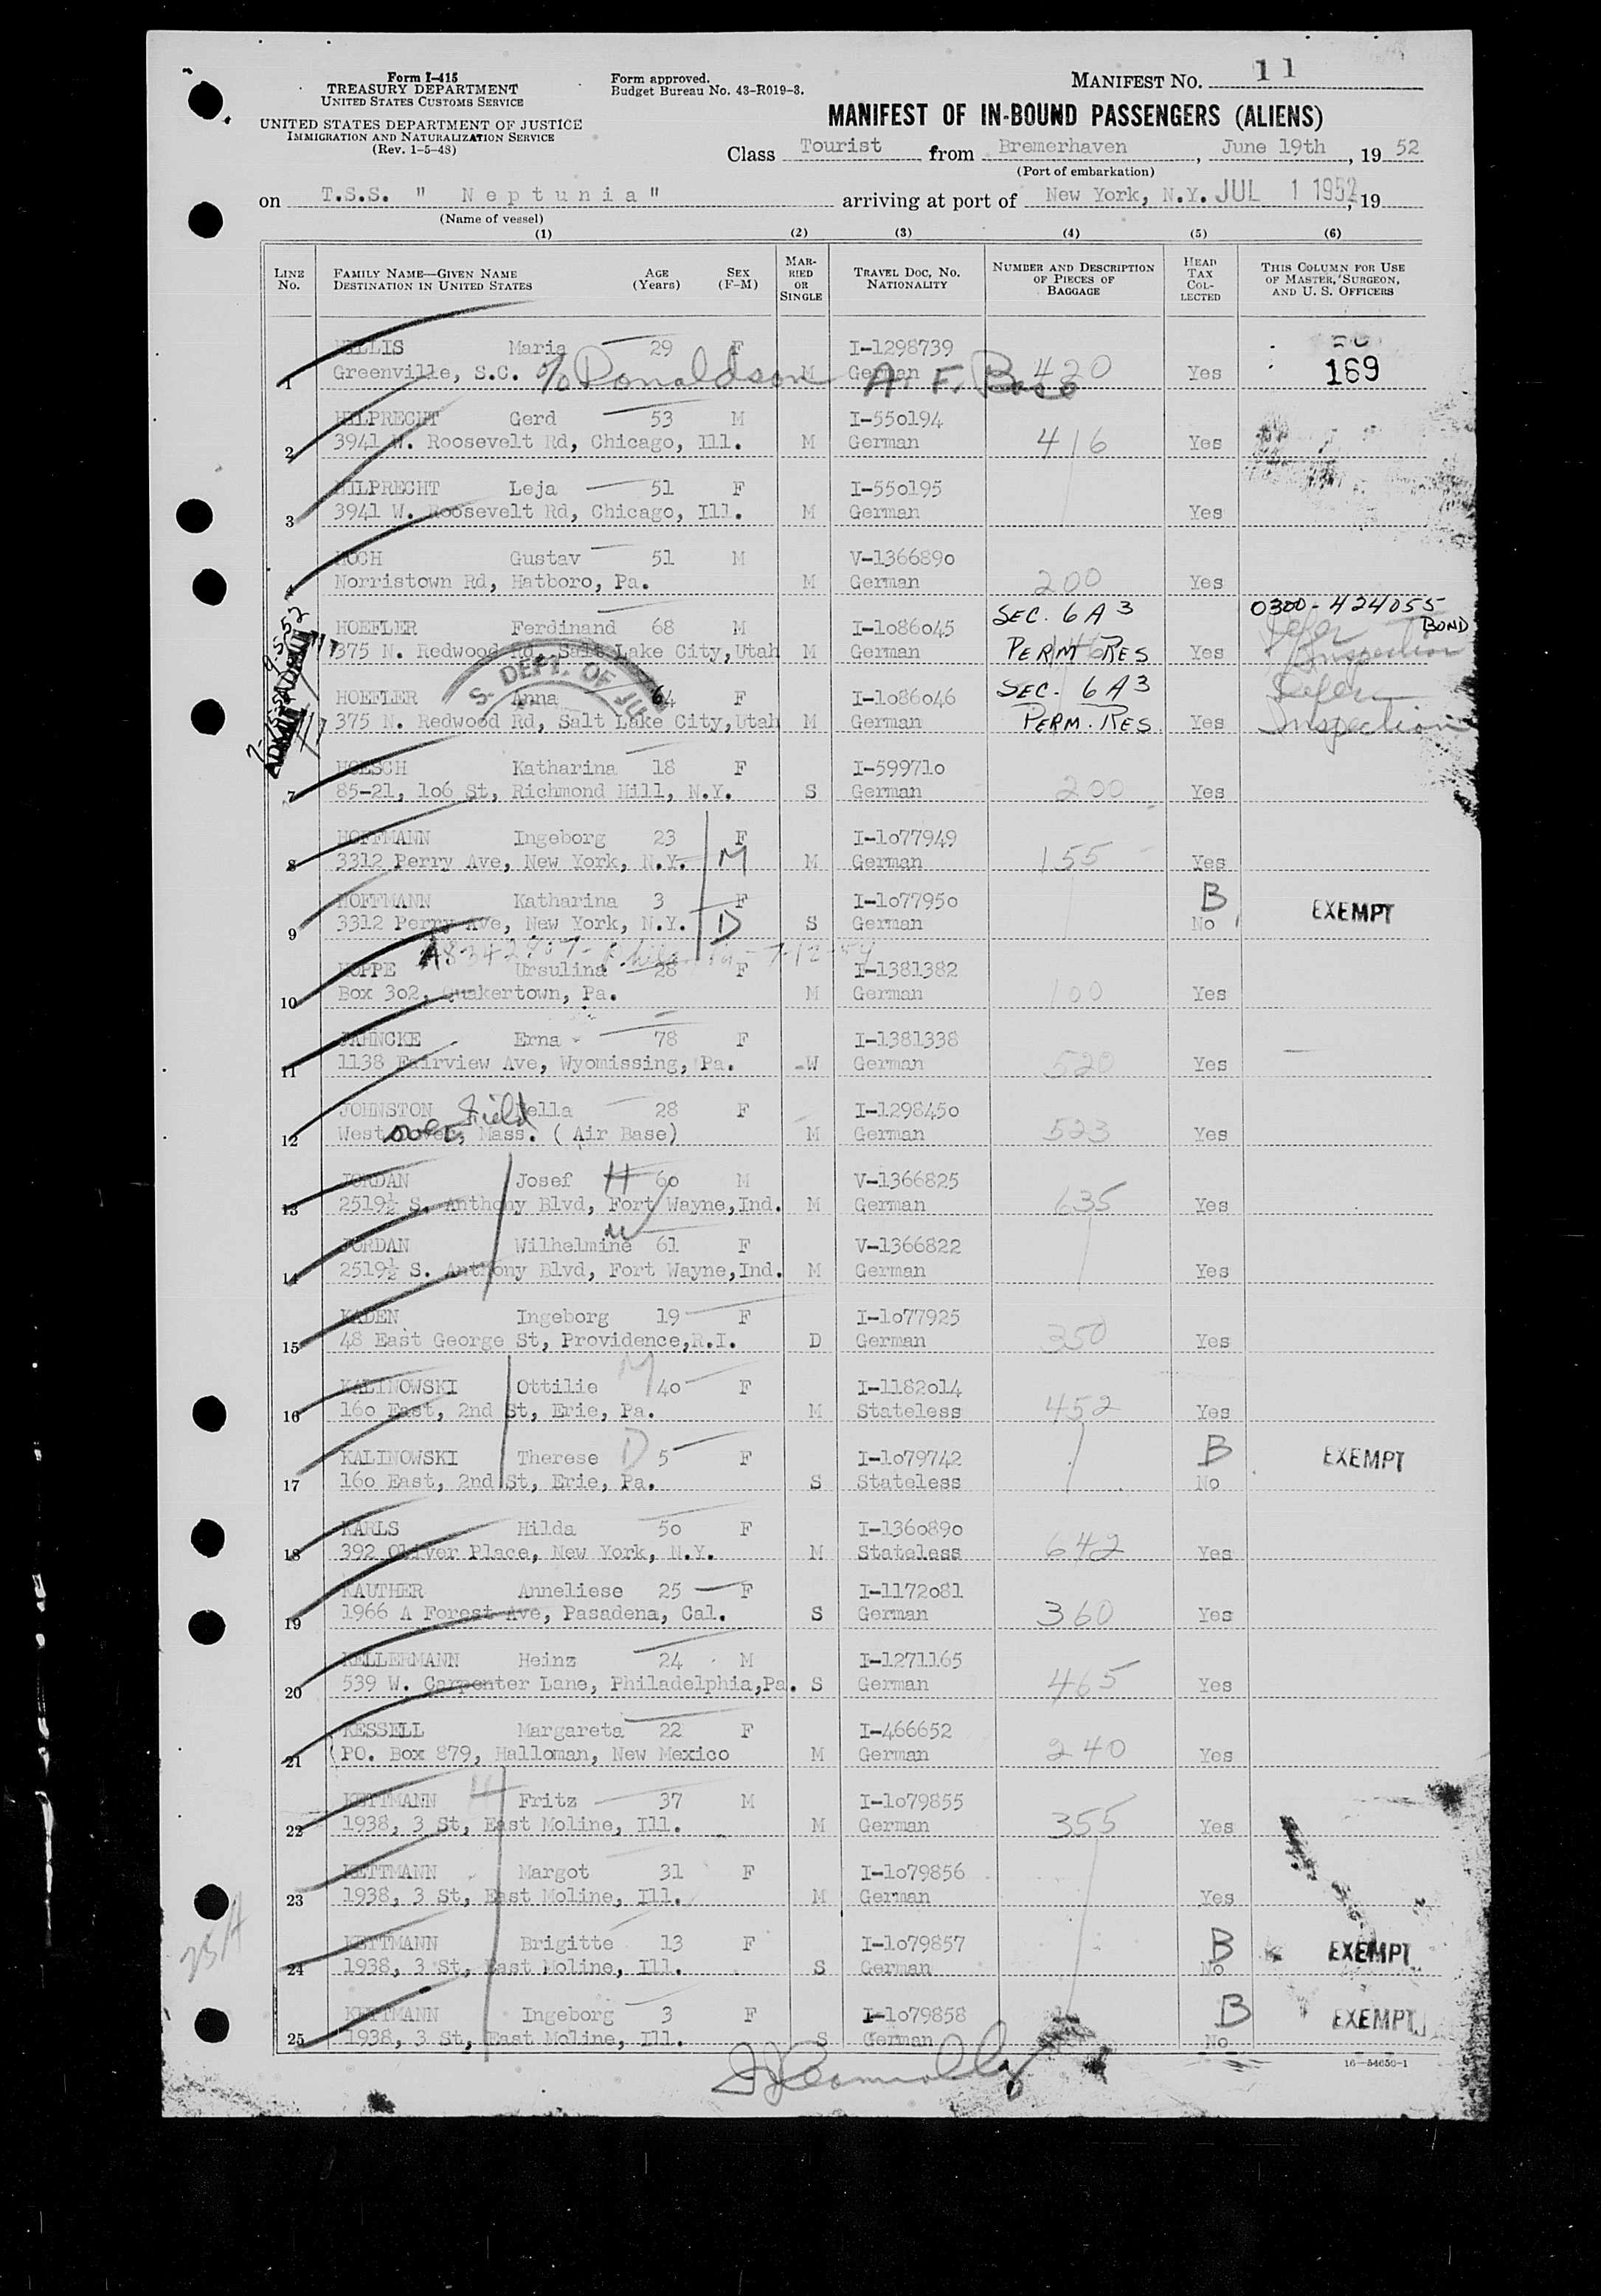 Form I-415
TREASURY DEPARTMENT
UNITED STATES CUSTOMS SERVICE
UNITED STATES DEPARTMENT OF JUSTICE
IMMIGRATION AND NATURALIZATION SERVICE
(Rev. 1-5-48)
Form approved.
Budget Bureau No. 43-R019-3.
MANIFEST NO. 11
MANIFEST OF IN-BOUND PASSENGERS (ALIENS)
Class Tourist from Bremerhaven, June 19th, 19 52
(Port of embarkation)
on T.S.S. " Neptunia" arriving at port of New York, N.Y. JUL 1 1952, 19
(Name of vessel)
(1) (2) (3) (4) (5) (6)
LINE NO. FAMILY NAME—GIVEN NAME DESTINATION IN UNITED STATES AGE (Years) SEX (F-M) MARRIED OR SINGLE TRAVEL DOC. NO. NATIONALITY NUMBER AND DESCRIPTION OF PIECES OF BAGGAGE HEAD TAX COLLECTED THIS COLUMN FOR USE OF MASTER, SURGEON, AND U. S. OFFICERS
HILLIS Maria 29 F I-1298739
1 Greenville, S.C. % Donaldson A. F. Base M German 420 Yes 169
HILPRECHT Gerd 53 M I-550194
2 3941 W. Roosevelt Rd, Chicago, Ill. M German 416 Yes
HILPRECHT Leja 51 F I-550195
3 3941 W. Roosevelt Rd, Chicago, Ill. M German Yes
HOCH Gustav 51 M V-1366890
4 Norristown Rd, Hatboro, Pa. M German 200 Yes
HOEFLER Ferdinand 68 M I-1086045 SEC. 6A3 0300-424055 BOND
375 N. Redwood Rd, Salt Lake City, Utah M German PERM RES Yes Defer Inspection
HOEFLER Anna 64 F I-1086046 SEC. 6A3 Defer
375 N. Redwood Rd, Salt Lake City, Utah M German PERM. RES Yes Inspection
S. DEPT. OF JU
HOESCH Katharina 18 F I-599710
7 85-21, 106 St, Richmond Hill, N.Y. S German 200 Yes
HOFFMANN Ingeborg 23 F I-1077949
8 3312 Perry Ave, New York, N.Y. M M German 155 Yes
HOFFMANN Katharina 3 F I-1077950 B EXEMPT
9 3312 Perry Ave, New York, N.Y. D S German No
HOPPE Ursulina 28 F I-1381382
10 Box 302, Quakertown, Pa. M German 100 Yes
JAHNCKE Erna 78 F I-1381338
11 1138 Fairview Ave, Wyomissing, Pa. W German 520 Yes
JOHNSTON Field Della 28 F I-1298450
12 West over, Mass. ( Air Base) M German 523 Yes
JORDAN Josef H 60 M V-1366825
13 2519½ S. Anthony Blvd, Fort Wayne, Ind. M German 635 Yes
JORDAN Wilhelmine W 61 F V-1366822
14 2519½ S. Anthony Blvd, Fort Wayne, Ind. M German Yes
KADEN Ingeborg 19 F I-1077925
15 48 East George St, Providence, R.I. D German 350 Yes
KALINOWSKI Ottilie M 40 F I-1182014
16 160 East, 2nd St, Erie, Pa. M Stateless 452 Yes
KALINOWSKI Therese D 5 F I-1079742 B EXEMPT
17 160 East, 2nd St, Erie, Pa. S Stateless No
KARLS Hilda 50 F I-1360890
18 392 Oliver Place, New York, N.Y. M Stateless 642 Yes
KAUTHER Anneliese 25 F I-1172081
19 1966 A Forest Ave, Pasadena, Cal. S German 360 Yes
KELLERMANN Heinz 24 M I-1271165
20 539 W. Carpenter Lane, Philadelphia, Pa. S German 465 Yes
KESSELL Margareta 22 F I-466652
21 PO. Box 879, Halloman, New Mexico M German 240 Yes
KETTMANN H Fritz 37 M I-1079855
22 1938, 3 St, East Moline, Ill. M German 355 Yes
KETTMANN Margot 31 F I-1079856
23 1938, 3 St, East Moline, Ill. M German Yes
KETTMANN Brigitte 13 F I-1079857 B EXEMPT
24 1938, 3 St, East Moline, Ill. S German No
KETTMANN Ingeborg 3 F I-1079858 B EXEMPT
25 1938, 3 St, East Moline, Ill. S German No
23A
16—54650-1